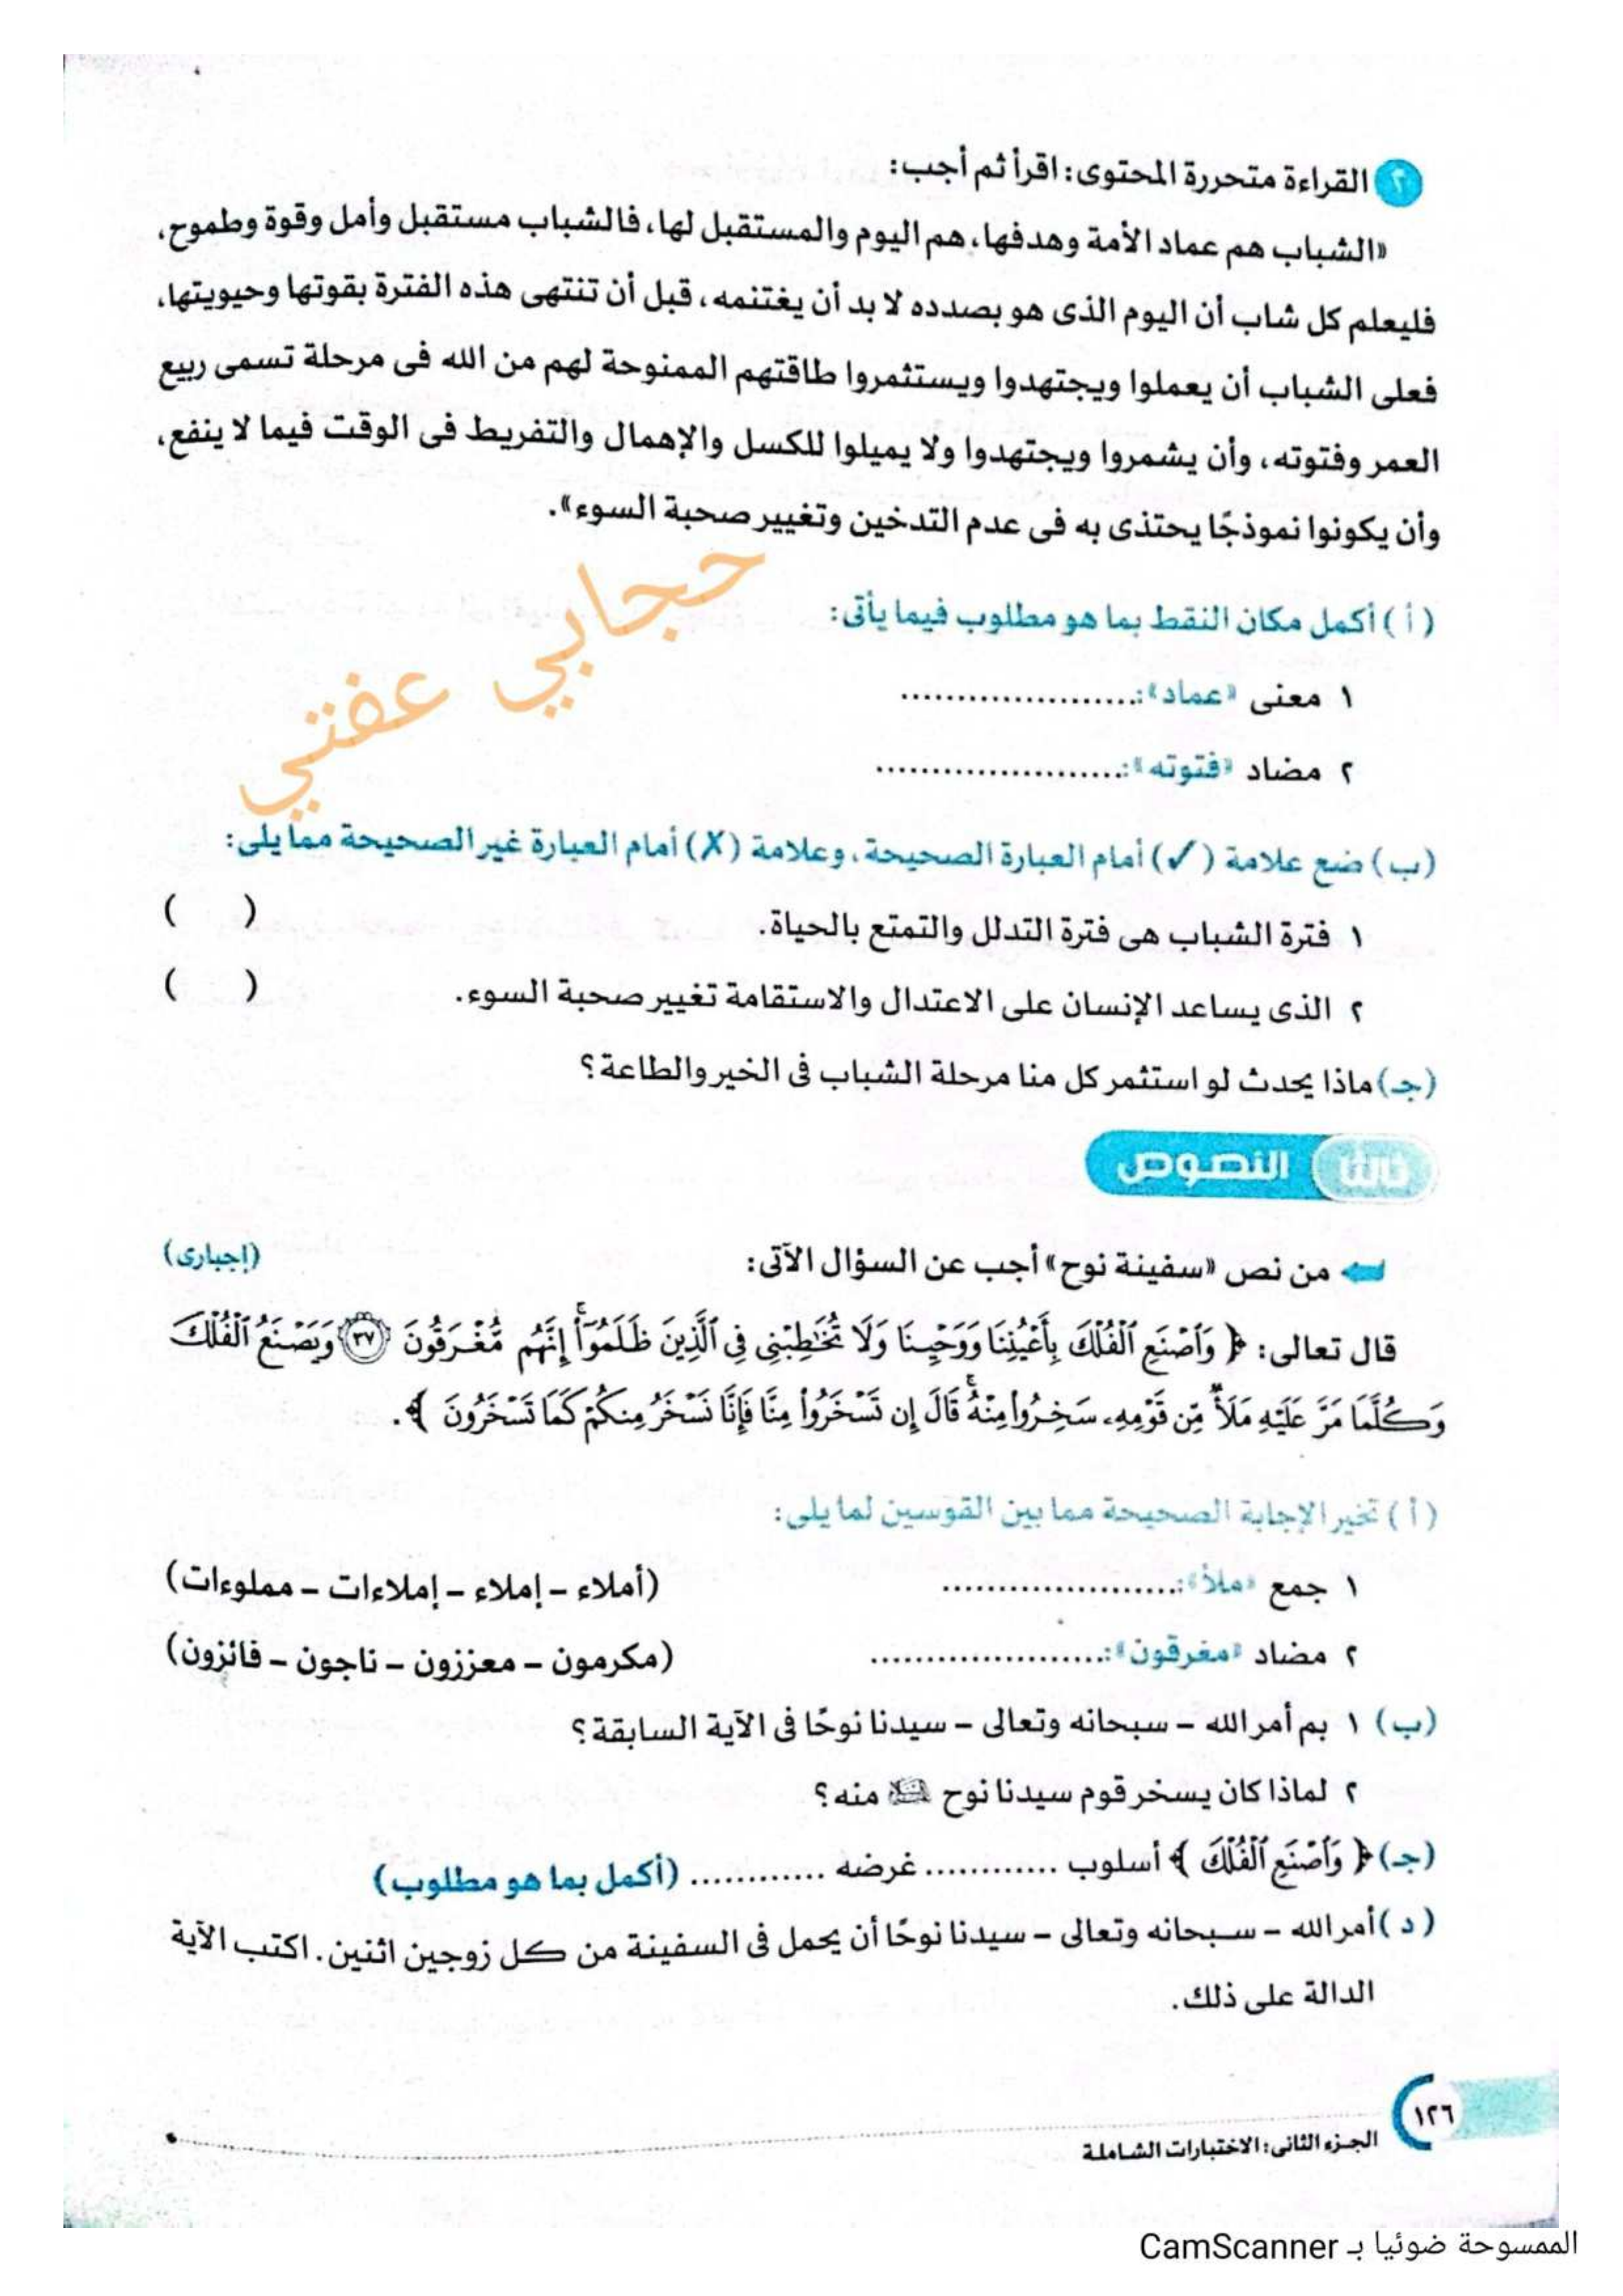 ٢ القراءة متحررة المحتوى: اقرأ ثم أجب:
«الشباب هم عماد الأمة وهدفها، هم اليوم والمستقبل لها، فالشباب مستقبل وأمل وقوة وطموح،
فليعلم كل شاب أن اليوم الذى هو بصدده لا بد أن يغتنمه، قبل أن تنتهى هذه الفترة بقوتها وحيويتها،
فعلى الشباب أن يعملوا ويجتهدوا ويستثمروا طاقتهم الممنوحة لهم من الله فى مرحلة تسمى ربيع
العمر وفتوته، وأن يشمروا ويجتهدوا ولا يميلوا للكسل والإهمال والتفريط فى الوقت فيما لا ينفع،
وأن يكونوا نموذجًا يحتذى به فى عدم التدخين وتغيير صحبة السوء».
حجابي عفتي
( أ ) أكمل مكان النقط بما هو مطلوب فيما يأتى:
١ معنى «عماد»: .....................
٢ مضاد «فتوته»: ......................
(ب) ضع علامة (✓) أمام العبارة الصحيحة، وعلامة (✗) أمام العبارة غير الصحيحة مما يلى:
١ فترة الشباب هى فترة التدلل والتمتع بالحياة. ( )
٢ الذى يساعد الإنسان على الاعتدال والاستقامة تغيير صحبة السوء. ( )
(جـ) ماذا يحدث لو استثمر كل منا مرحلة الشباب فى الخير والطاعة؟
ثالثا النصوص
من نص «سفينة نوح» أجب عن السؤال الآتى: (إجبارى)
قال تعالى: ﴿ وَٱصْنَعِ ٱلْفُلْكَ بِأَعْيُنِنَا وَوَحْيِنَا وَلَا تُخَٰطِبْنِى فِى ٱلَّذِينَ ظَلَمُوٓا۟ إِنَّهُم مُّغْرَقُونَ ٣٧ وَيَصْنَعُ ٱلْفُلْكَ
وَكُلَّمَا مَرَّ عَلَيْهِ مَلَأٌ مِّن قَوْمِهِۦ سَخِرُوا۟ مِنْهُ قَالَ إِن تَسْخَرُوا۟ مِنَّا فَإِنَّا نَسْخَرُ مِنكُمْ كَمَا تَسْخَرُونَ ﴾.
( أ ) تخير الإجابة الصحيحة مما بين القوسين لما يلى:
١ جمع «ملأ»: ..................... (أملاء – إملاء – إملاءات – مملوءات)
٢ مضاد «مغرقون»: ..................... (مكرمون – معززون – ناجون – فائزون)
(ب) ١ بم أمر الله – سبحانه وتعالى – سيدنا نوحًا فى الآية السابقة؟
٢ لماذا كان يسخر قوم سيدنا نوح عليه السلام منه؟
(جـ) ﴿ وَٱصْنَعِ ٱلْفُلْكَ ﴾ أسلوب ............ غرضه ............ (أكمل بما هو مطلوب)
( د ) أمر الله – سبحانه وتعالى – سيدنا نوحًا أن يحمل فى السفينة من كل زوجين اثنين. اكتب الآية
الدالة على ذلك.
١٢٦
الجزء الثانى: الاختبارات الشاملة
الممسوحة ضوئيا بـ CamScanner